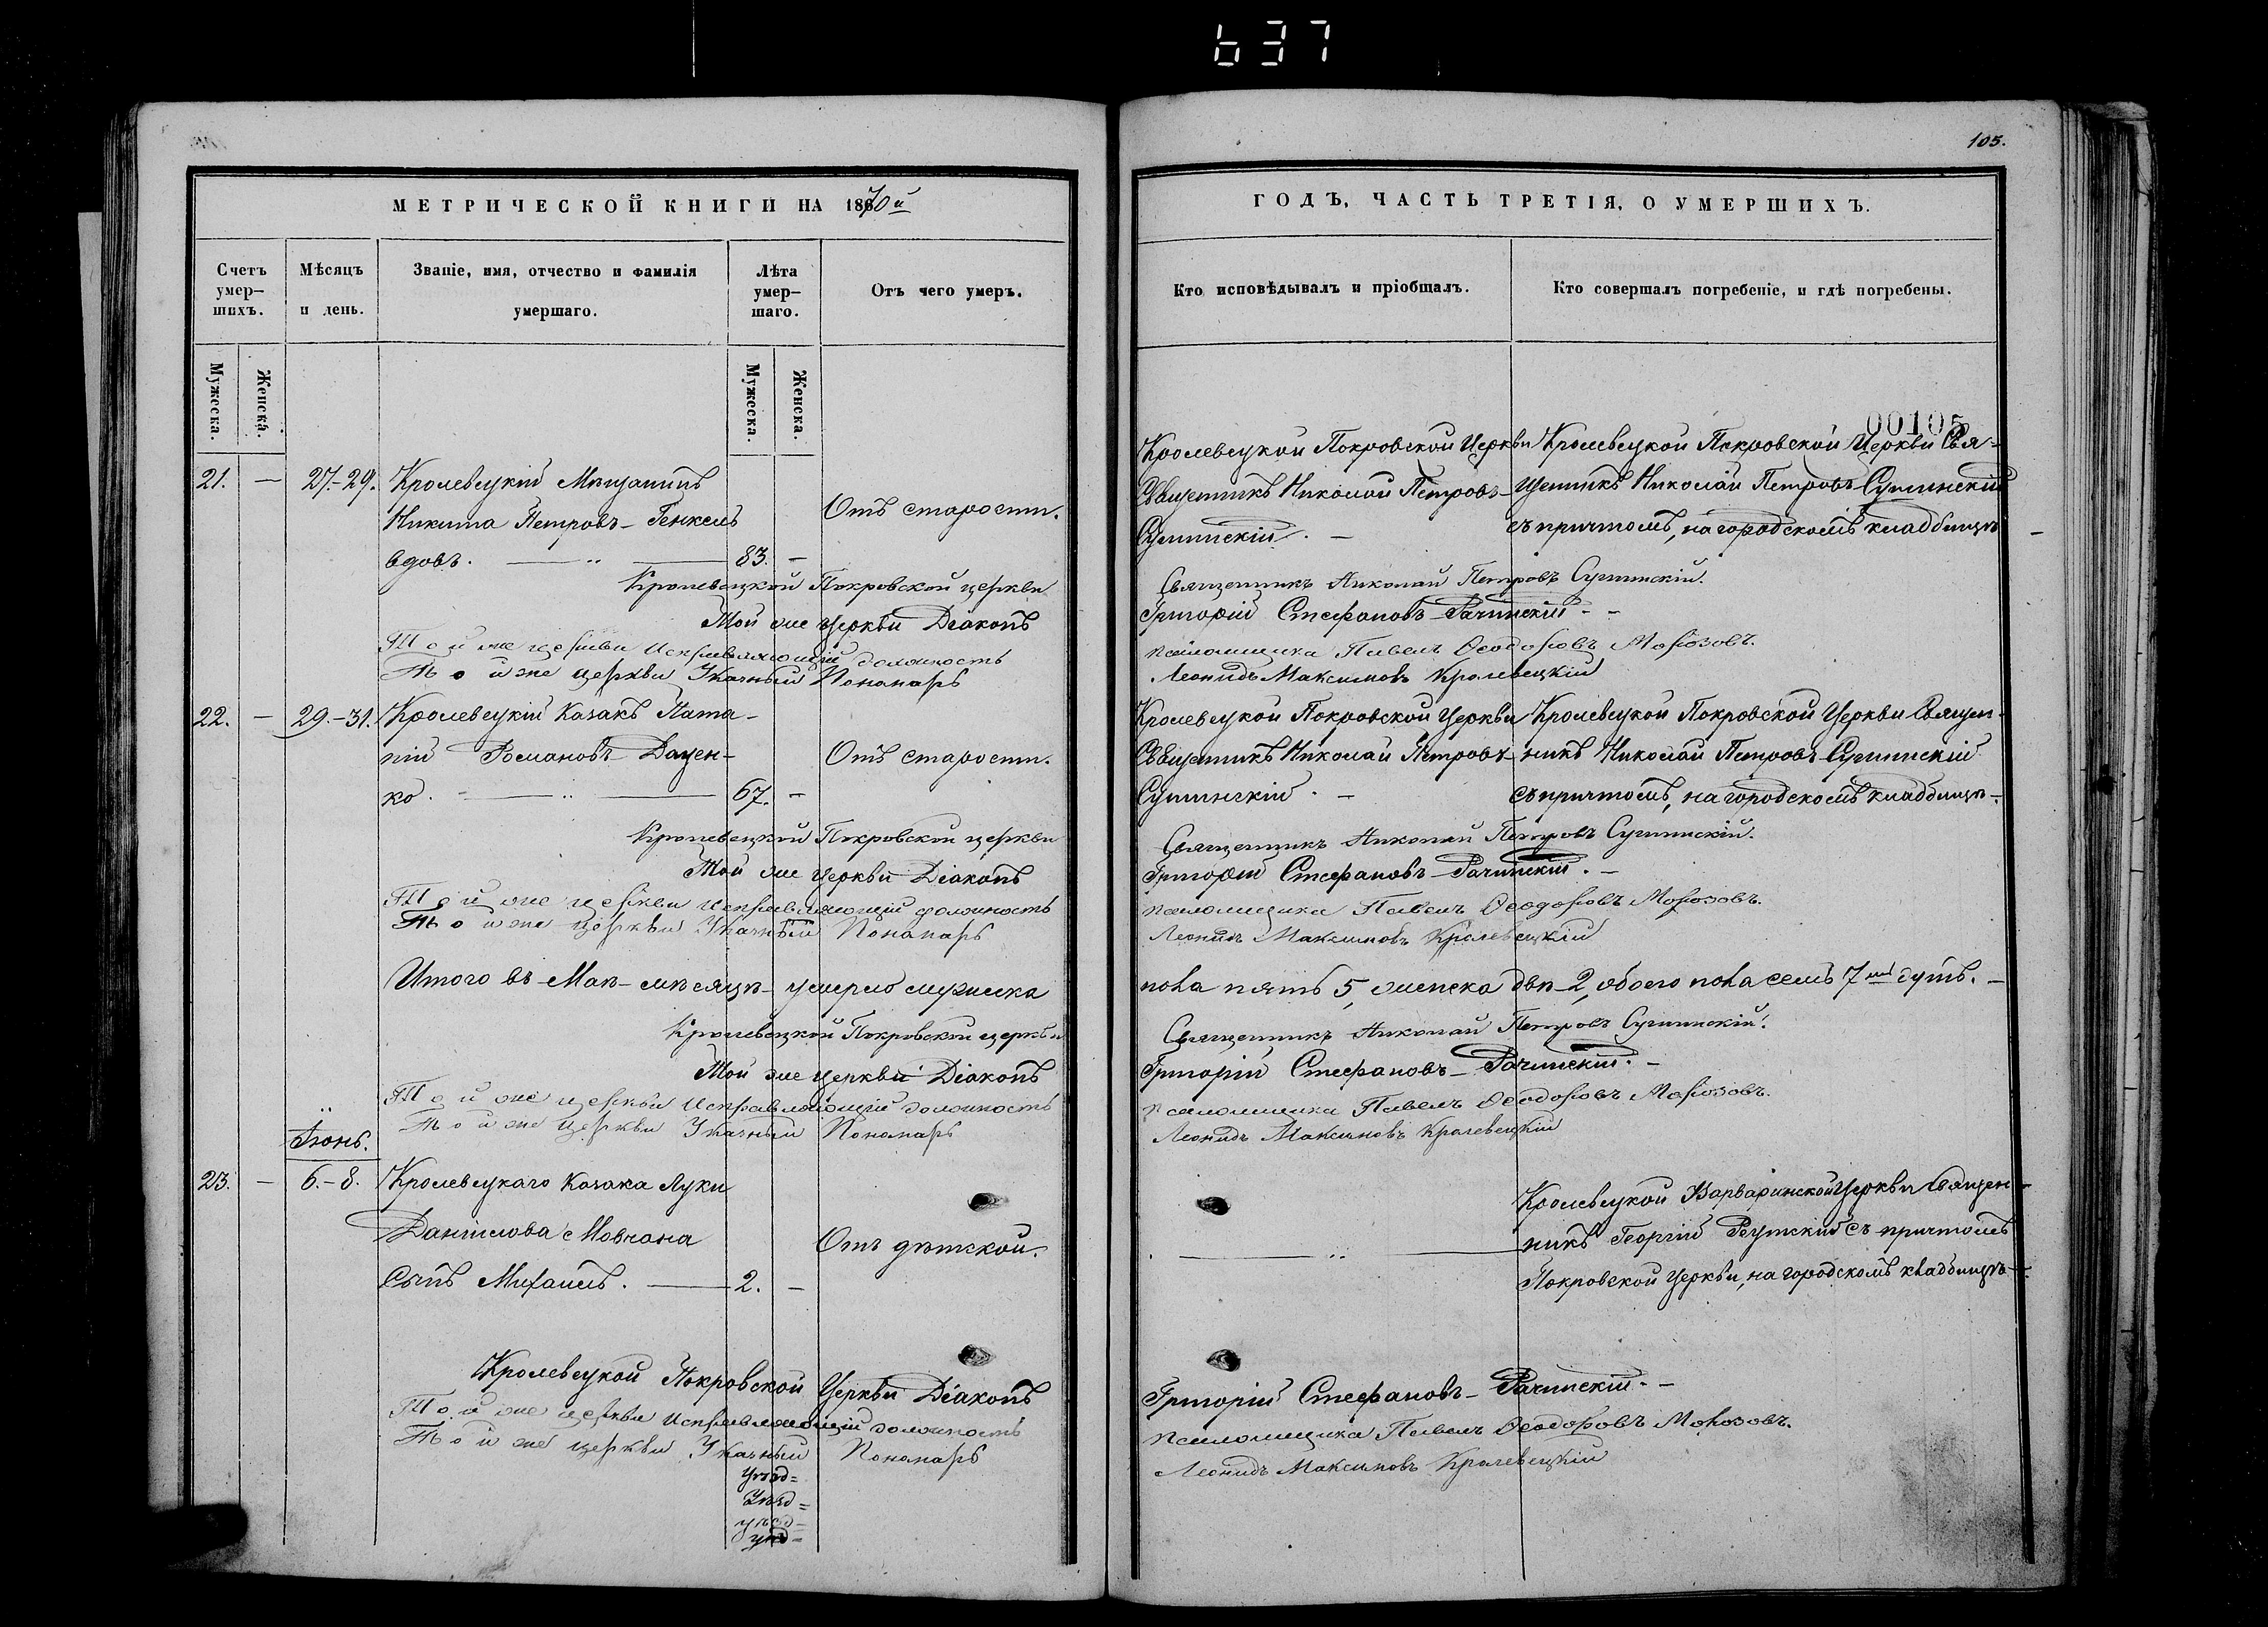 637
105.
МЕТРИЧЕСКОЙ КНИГИ НА 1870й
ГОДЪ, ЧАСТЬ ТРЕТІЯ, О УМЕРШИХЪ.
Счетъ умер-шихъ.
Мѣсяцъ и день.
Званіе, имя, отчество и фамилія умершаго.
Лѣта умер-шаго.
Отъ чего умеръ.
Кто исповѣдывалъ и пріобщалъ.
Кто совершалъ погребеніе, и гдѣ погребены.
Мужеска.
Женска.
Мужеска.
Женска.
00105
21. — 27.-29. Кролевецкій Мѣщанинъ
Никита Петровъ-
вдовъ. 83. —
Отъ старости.
Кролевецкой Покровской Церкви
Священникъ Николай Петровъ-
Кролевецкой Покровской Церкви Свя-
щенникъ Николай Петровъ
съ причтомъ, на городскомъ кладбищѣ
Кролевецкой Покровской церкви Священникъ Николай Петровъ
Той же Церкви Діаконъ Григорій Стефановъ-Рачинскій. -
Той же церкви Исправляющій должность псаломщика Павелъ Ѳеодоровъ Морозовъ.
Той же церкви Указный Пономарь Леонидъ Максимовъ Кролевецкій
22. — 29.-31. Кролевецкій Казакъ Пата-
пій Романовъ Дацен-
ко. 67. —
Отъ старости.
Кролевецкой Покровской Церкви
Священникъ Николай Петровъ-
Кролевецкой Покровской Церкви Священ-
никъ Николай Петровъ
съ причтомъ, на городскомъ кладбищѣ.
Кролевецкой Покровской церкви Священникъ Николай Петровъ
Той же Церкви Діаконъ Григорій Стефановъ-Рачинскій. -
Той же церкви Исправляющій должность псаломщика Павелъ Ѳеодоровъ Морозовъ.
Той же церкви Указный Пономарь Леонидъ Максимовъ Кролевецкій
Итого въ Маѣ мѣсяцѣ умерло мужеска пола пять 5, женска двѣ 2, обоего пола семь 7мь душъ. -
Кролевецкой Покровской церкви Священникъ Николай Петровъ
Той же Церкви Діаконъ Григорій Стефановъ-Рачинскій. -
Той же церкви Исправляющій должность псаломщика Павелъ Ѳеодоровъ Морозовъ.
Той же церкви Указный Пономарь Леонидъ Максимовъ Кролевецкій
Іюнь.
23. — 6.-8. Кролевецкаго Казака Луки
Даніилова Мовчана
Сынъ Михаилъ. 2. —
Отъ дѣтской.
Кролевецкой Варваринской Церкви Священ-
никъ Георгій съ причтомъ
Покровской Церкви, на городскомъ кладбищѣ
Кролевецкой Покровской Церкви Діаконъ Григорій Стефановъ-Рачинскій. -
Той же церкви Исправляющій должность псаломщика Павелъ Ѳеодоровъ Морозовъ.
Той же церкви Указный Пономарь Леонидъ Максимовъ Кролевецкій